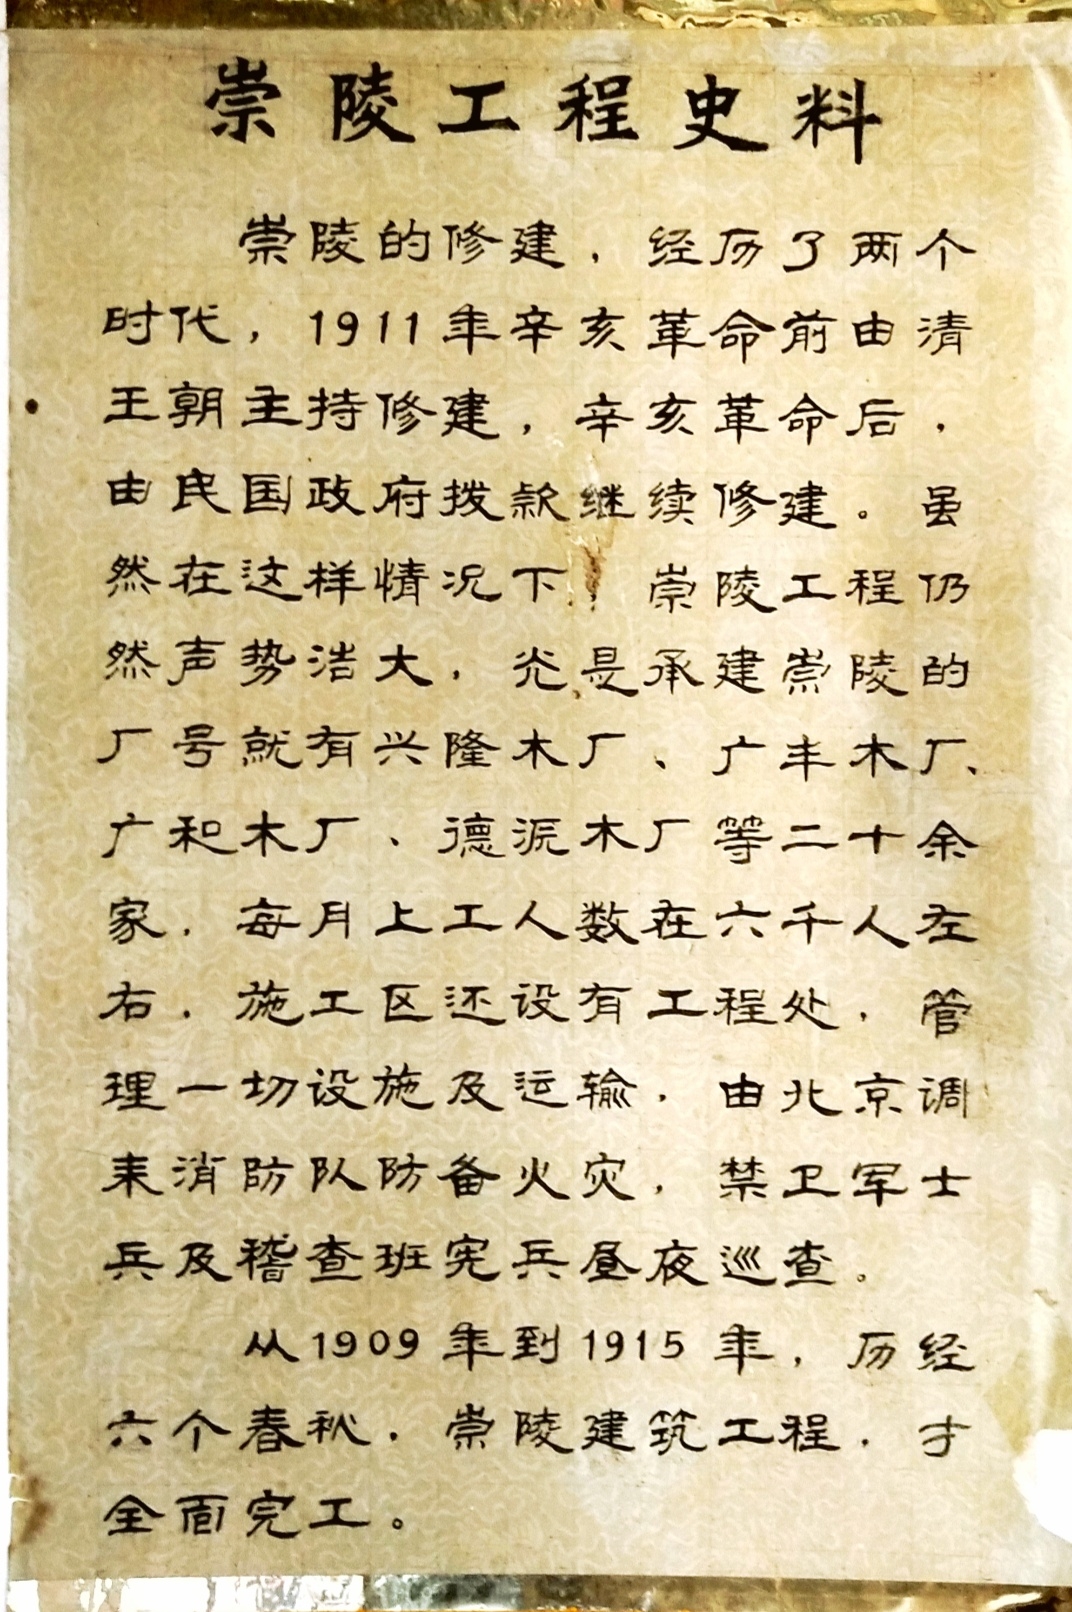 崇陵工程史料
崇陵的修建，经历了两个
时代，1911年辛亥革命前由清
王朝主持修建，辛亥革命后，
由民国政府拨款继续修建。虽
然在这样情况下，崇陵工程仍
然声势浩大，光是承建崇陵的
厂号就有兴隆木厂、广丰木厂、
广和木厂、德源木厂等二十余
家，每月上工人数在六千人左
右，施工区还设有工程处，管
理一切设施及运输，由北京调
来消防队防备火灾，禁卫军士
兵及稽查班宪兵昼夜巡查。
从1909年到1915年，历经
六个春秋，崇陵建筑工程，才
全面完工。